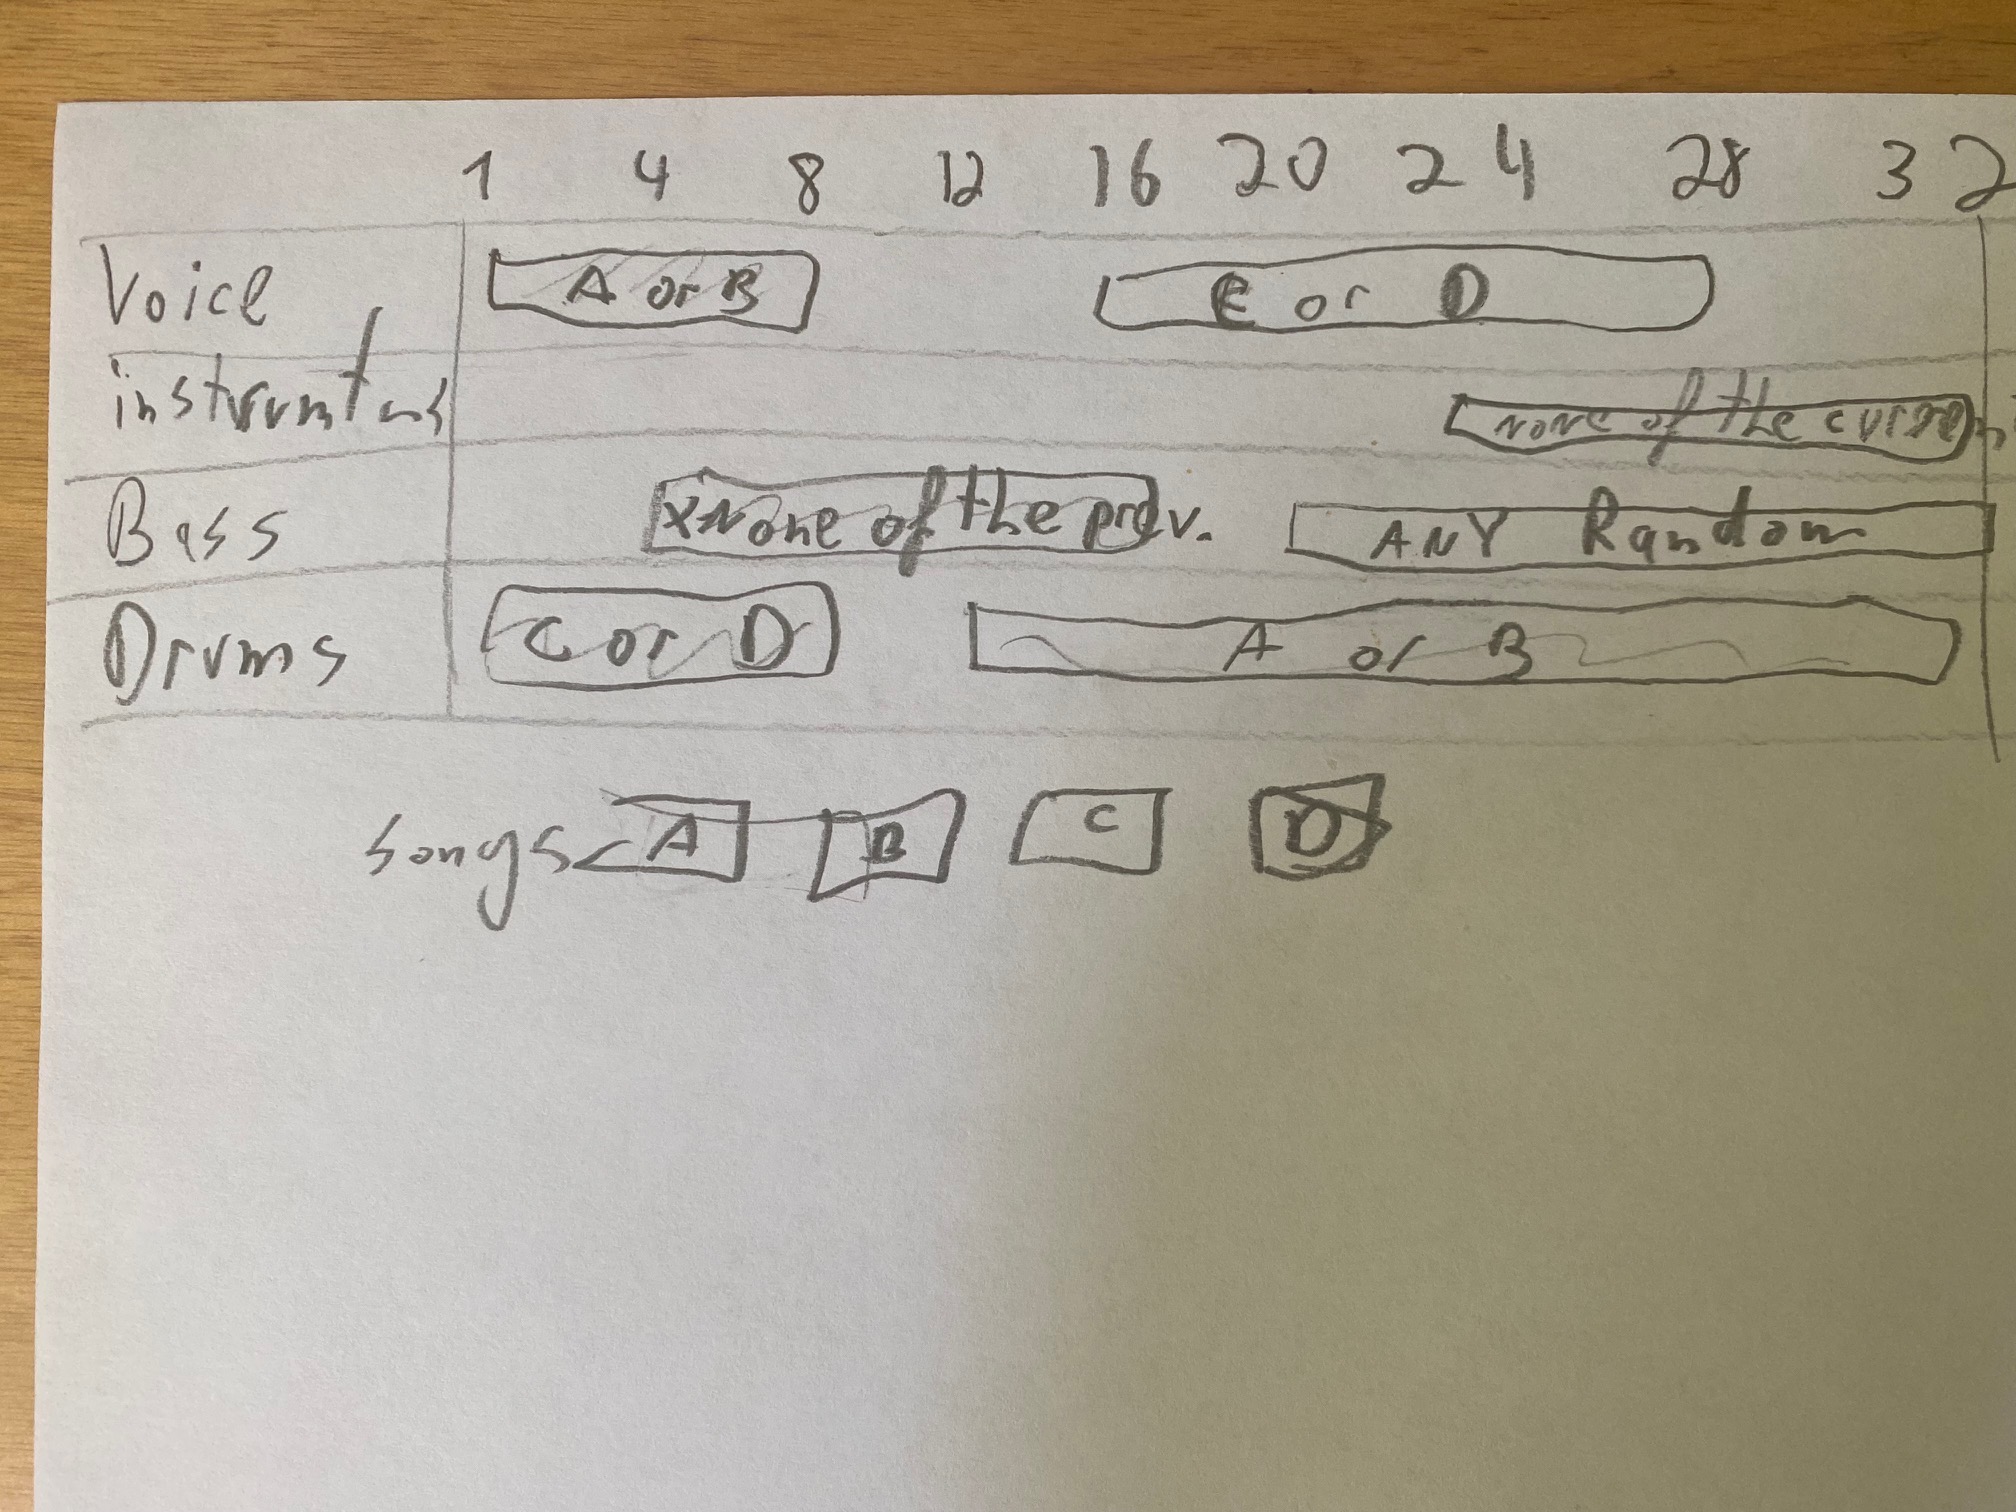 1 4 8 12 16 20 24 28 32
Voice A or B C or D
instrumtns none of the curren
Bass None of the prev. ANY Random
Drums C or D A or B
songs A B C D